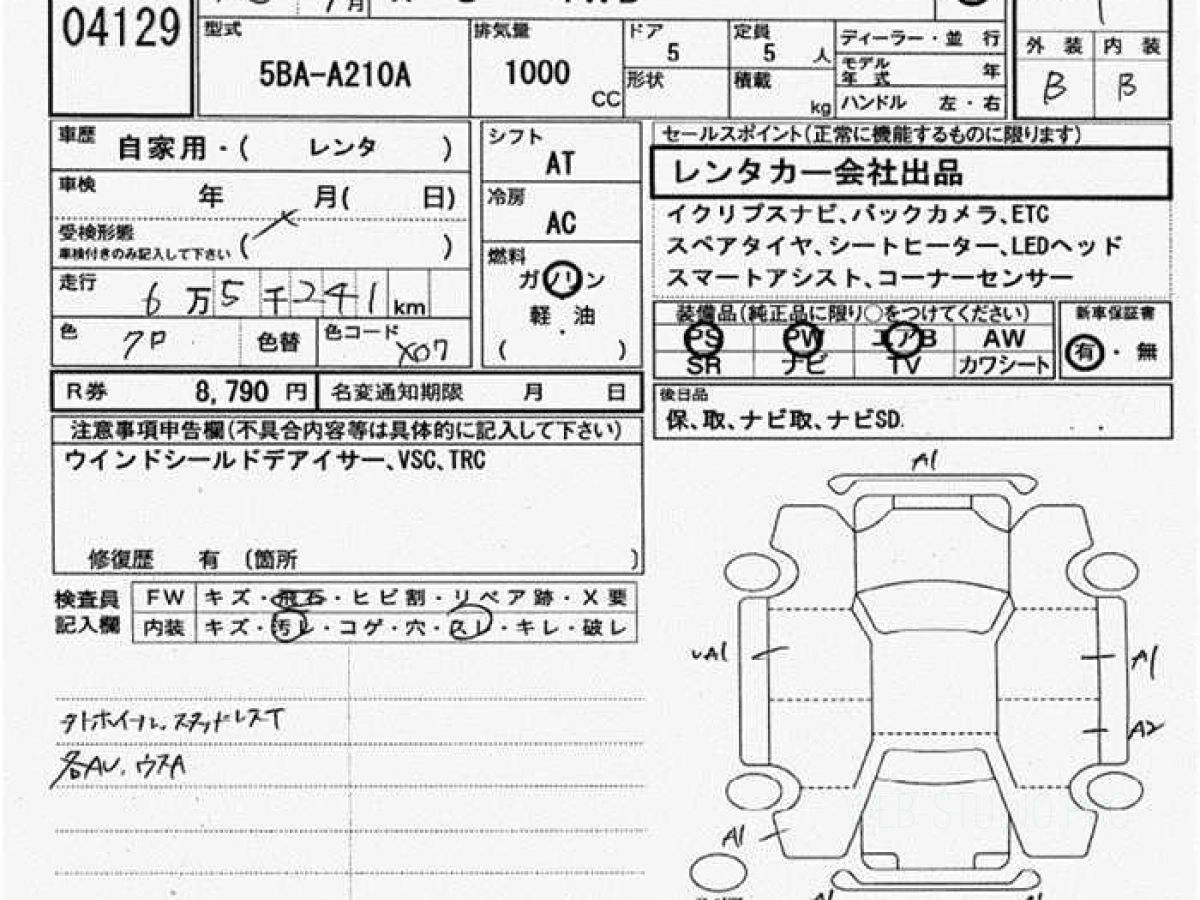 04129
型式
5BA-A210A
排気量
1000
CC
ドア
5
形状
定員
5 人
積載
kg
ディーラー・並 行
モデル
年 式 年
ハンドル 左・右
外 装 内 装
B B
車歴
自家用・( レンタ )
車検
年 月( 日)
受検形態
車検付きのみ記入して下さい ( )
走行
6 万 5 千 2 4 1 km
色
色替
色コード
X07
シフト
AT
冷房
AC
燃料
ガソリン
軽・油
( )
セールスポイント(正常に機能するものに限ります)
レンタカー会社出品
イクリプスナビ、バックカメラ、ETC
スペアタイヤ、シートヒーター、LEDヘッド
スマートアシスト、コーナーセンサー
装備品(純正品に限り○をつけてください)
PS PW エアB AW
SR ナビ TV カワシート
新車保証書
有・無
R券 8,790 円 名変通知期限 月 日
後日品
保、取、ナビ取、ナビSD.
注意事項申告欄(不具合内容等は具体的に記入して下さい)
ウインドシールドデアイサー、VSC、TRC
修復歴 有 (箇所 )
検査員
記入欄
FW キズ・飛石・ヒビ割・リペア跡・X要
内装 キズ・汚レ・コゲ・穴・スレ・キレ・破レ
A1
A1
A1
A2
A1